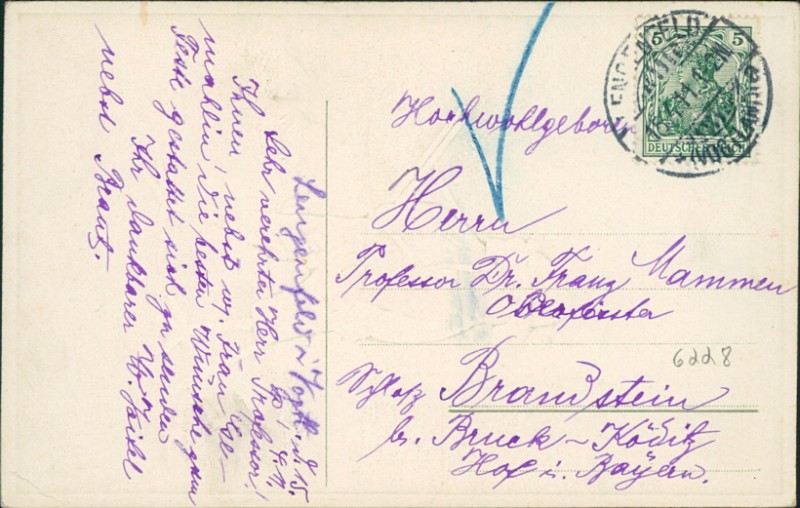 Lengenfeld i. Vogtl. d. 15.
Sehr verehrter Herr Professor!
Ihnen, nebst w. Frau Ge-
mahlin die besten Wünsche zum
Feste gestattet sich zu senden
Ihr dankbarer
nebst Braut.
Hochwohlgeboren
Herrn
Professor Dr. Franz Mammen
Oberförster
Schloß Brandstein
b. Bruck-Köditz
Hof i. Bayern.
6228
LENGENFELD
(VOGTLAND)
5 5
DEUTSCHES REICH